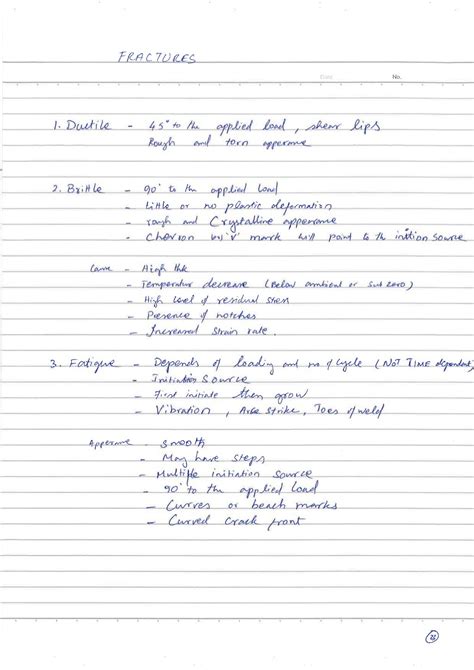 FRACTURES
Date No.
1. Ductile - 45° to the applied load, shear lips
Rough and torn apperane
2. Brittle - 90° to the applied load
- Little or no plastic deformation
- rough and Crystalline apperane
- Chevron 'V' mark will point to the intion source
Cause - High thk
- Temperatur decrease (Below ambient or Sub zero)
- High level of residual stress
- Presence of notches
- Increased strain rate.
3. Fatigue - Depends of loading and no of cycle (NOT TIME dependent)
- Initiation source
- First initiate then grow
- Vibration, Arc strike, Toes of weld
Apperane - smooth
- May have steps
- Multiple initiation source
- 90° to the applied load
- Curves or beach marks
- Curved crack front